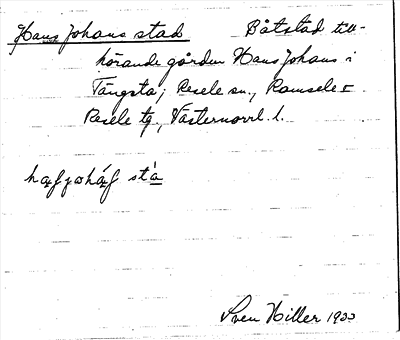 Hans Johans stad Båtstad till-
hörande gården Hans Johans i
Tängsta, Resele sn., Ramsele o
Resele tg, Västernorrl. l.
Sven Hiller 1933